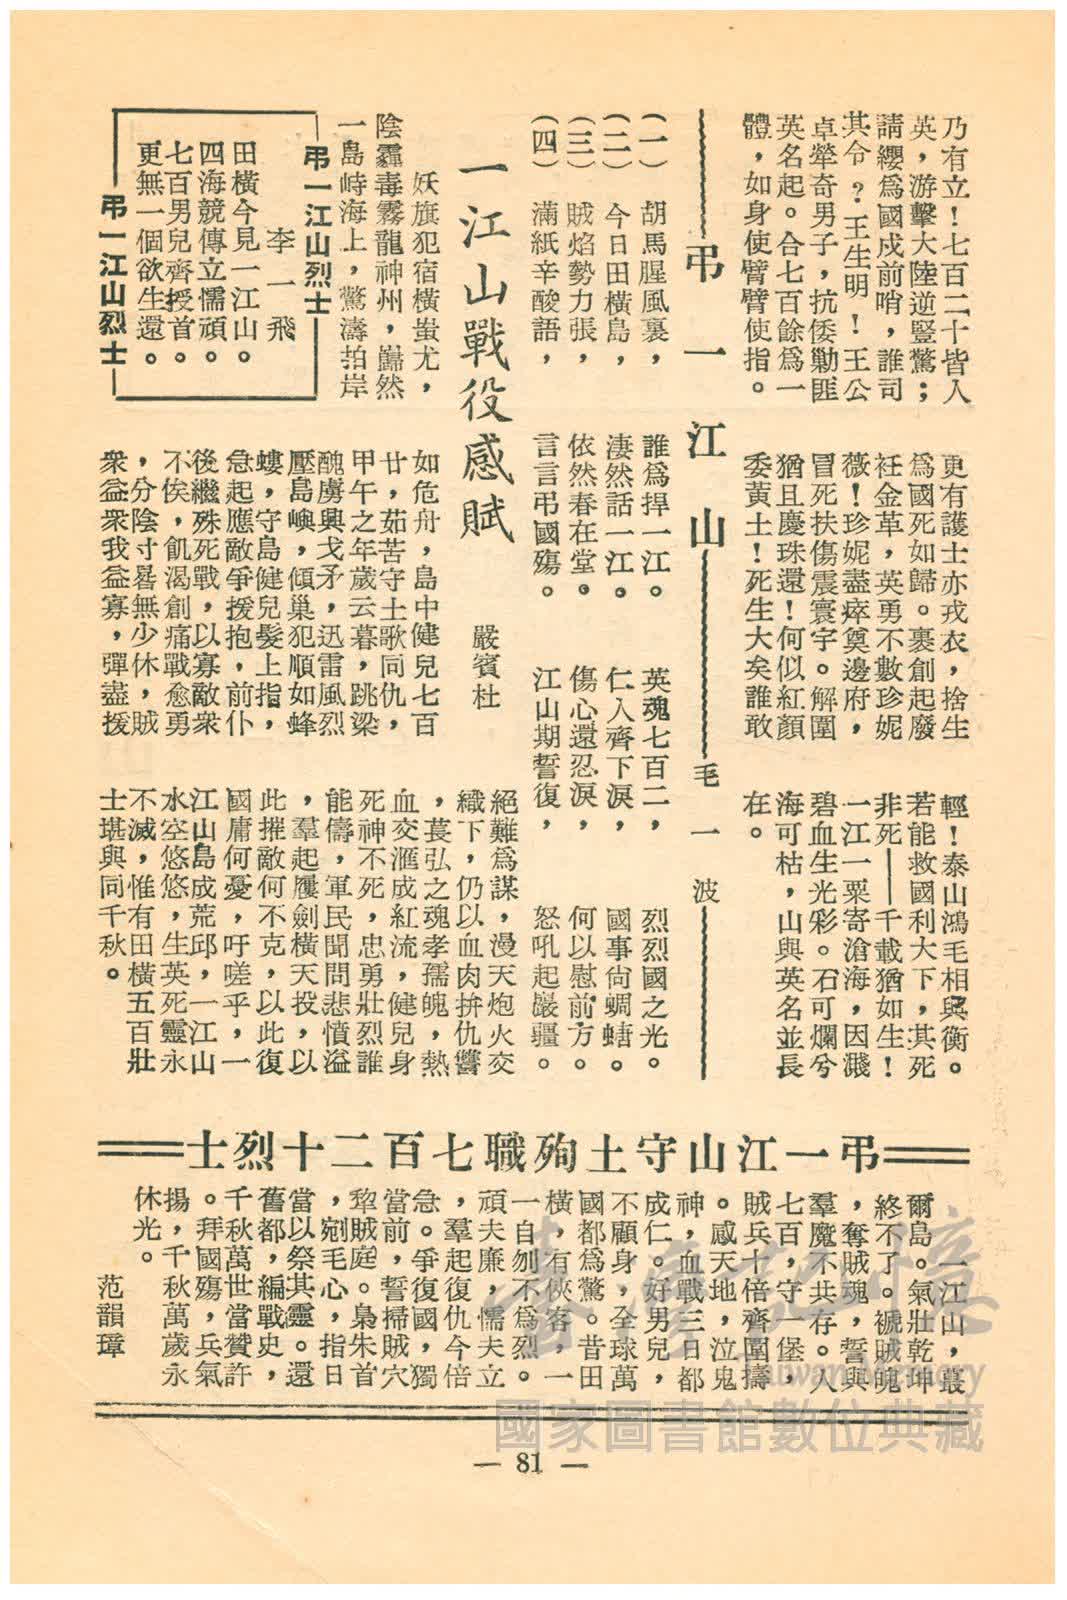 乃有立！七百二十皆人
英，游擊大陸逆豎驚；
請纓爲國戍前哨，誰司
其令？王生明！王公
卓犖奇男子，抗倭勦匪
英名起。合七百餘爲一
體，如身使臂臂使指。
更有護士亦戎衣，捨生
爲國死如歸。裹創起廢
衽金革，英勇不數珍妮
薇！珍妮盡瘁奠邊府，
冒死扶傷震寰宇。解圍
猶且慶珠還！何似紅顏
委黃土！死生大矣誰敢
輕！泰山鴻毛相與衡。
若能救國利大下，其死
非死——千載猶如生！
一江一粟寄滄海，因濺
碧血生光彩。石可爛兮
海可枯，山與英名並長
在。
弔一江山
毛一波
(一) 胡馬腥風裏， 誰爲捍一江。 英魂七百二， 烈烈國之光。
(二) 今日田橫島， 淒然話一江。 仁人齊下淚， 國事尙蜩螗。
(三) 賊焰勢力張， 依然春在堂。 傷心還忍淚， 何以慰前方。
(四) 滿紙辛酸語， 言言弔國殤。 江山期誓復， 怒吼起巖疆。
一江山戰役感賦
嚴賓杜
妖旗犯宿橫蚩尤，
陰霾毒霧龍神州，巋然
一島峙海上，驚濤拍岸
如危舟，島中健兒七百
廿，茹苦守土歌同仇，
甲午之年歲云暮，跳梁
醜虜興戈矛，迅雷風烈
壓島嶼，傾巢犯順如蜂
螻，守島健兒髮上指，
急起應敵爭援抱，前仆
後繼殊死戰，以寡敵衆
不俟，飢渴創痛戰愈勇
，分陰寸晷無少休，賊
衆益衆我益寡，彈盡援
絕難爲謀，漫天炮火交
織下，仍以血肉拚仇讐
，萇弘之魂孝孺魄，熱
血交滙成紅流，健兒身
死神不死，忠勇壯烈誰
能儔，軍民聞問悲憤溢
，羣起屢劍橫天投，以
此摧敵何不克，以此復
國庸何憂，吁嗟乎，一
江山島成荒邱，一江山
水空悠悠，生英死靈永
不滅，惟有田橫五百壯
士堪與同千秋。
弔一江山烈士
李一飛
田橫今見一江山。
四海競傳立懦頑。
七百男兒齊授首。
更無一個欲生還。
弔一江山烈士
弔一江山守土殉職七百二十烈士
一江山，蕞
爾島。氣壯乾坤
終不了。褫賊魄
，奪賊魂，誓與
羣魔不共存。人
七百，守一堡，
賊兵十倍齊圍擣
。感天地，泣鬼
神，血戰三日都
成仁。好男兒，
不顧身，全球萬
國都爲驚。昔田
橫，有俠客，一
一自刎不爲烈。
頑夫廉，懦夫立
，羣起復仇今倍
急。爭復國，獨
當前，誓掃賊穴
犂賊庭。梟朱首
，剜毛心，指日
當以祭其靈。還
舊都，編戰史，
千秋萬世當贊許
。拜國殤，兵氣
揚，千秋萬歲永
休光。
范韻璋
臺灣記憶
Taiwan Memory
國家圖書館數位典藏
— 81 —